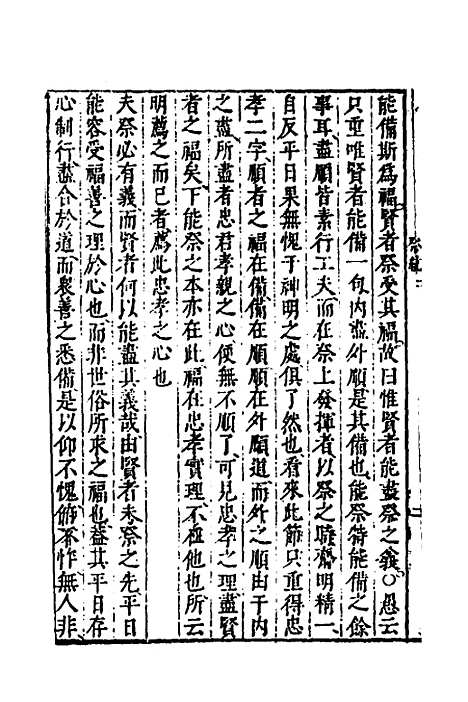 能備斯為福賢者祭受其福故曰惟賢者能盡祭之義〇愚云
只重唯賢者能備一句內盡外順是其備也能祭特能備之餘
事耳盡順皆素行工夫而在祭上發揮者以祭之時齋明精一
自反平日果無愧于神明之處俱了然也看來此節只重得忠
孝二字順者之福在備備在順順在外順道而外之順由于內
之盡所盡者忠君孝親之心便無不順了可見忠孝之理盡賢
者之福矣下能祭之本亦在此福在忠孝實理不極他也所云
明薦之而已者薦此忠孝之心也
夫祭必有義而賢者何以能盡其義哉由賢者未祭之先平日
能容受福善之理於心也而非世俗所求之福也蓋其平日存
心制行盡合於道而衆善之悉備是以仰不愧俯不怍無人非
祭統